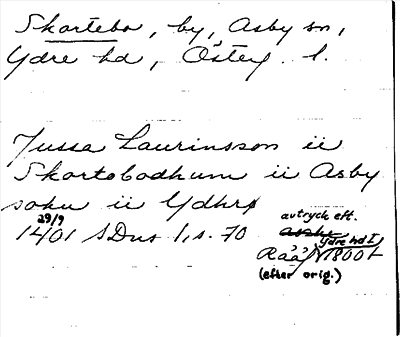 Skortebo, by, Asby sn,
Ydre hd, Östg. l.
Jussa Laurinsson ii
Skortobodhum ii Asby
sokn ii Ydhrø
29/9
1401 SDns 1, s. 70
avtryck eft.
Ydre hd I
1800 t
(efter orig.)